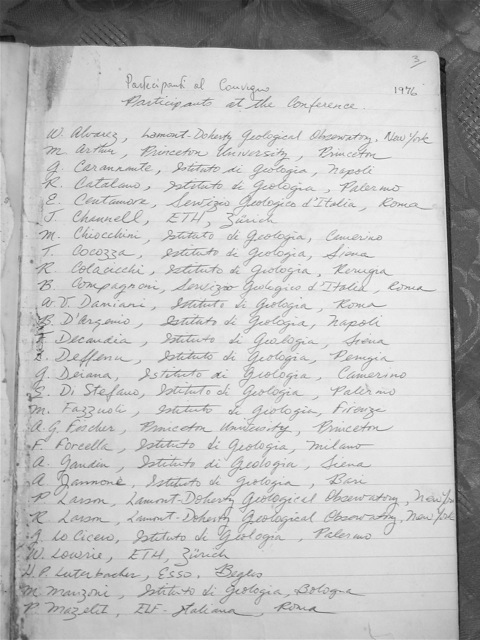 3
Partecipanti al Convegno
1976
Participants at the Conference.
W. Alvarez, Lamont-Doherty Geological Observatory, New York
M. Arthur, Princeton University, Princeton
G. Carannante, Istituto di Geologia, Napoli
R. Catalano, Istituto di Geologia, Palermo
E. Centamore, Servizio Geologico d'Italia, Roma
J. Channell, ETH, Zürich
M. Chiocchini, Istituto di Geologia, Camerino
T. Cocozza, Istituto di Geologia, Siena
R. Colacicchi, Istituto di Geologia, Perugia
B. Compagnoni, Servizio Geologico d'Italia, Roma
A. V. Damiani, Istituto di Geologia, Roma
B. D'Argenio, Istituto di Geologia, Napoli
Decandia, Istituto di Geologia, Siena
Deffenu, Istituto di Geologia, Perugia
G. Deiana, Istituto di Geologia, Camerino
E. Di Stefano, Istituto di Geologia, Palermo
M. Fazzuoli, Istituto di Geologia, Firenze
A.G. Fischer, Princeton University, Princeton
F. Forcella, Istituto di Geologia, Milano
A. Gandin, Istituto di Geologia, Siena
A. Iannone, Istituto di Geologia, Bari
P. Larson, Lamont-Doherty Geological Observatory, New York
R. Larson, Lamont-Doherty Geological Observatory, New York
G. Lo Cicero, Istituto di Geologia, Palermo
W. Lowrie, ETH, Zürich
H. P. Luterbacher, Esso, Begles
M. Manzoni, Istituto di Geologia, Bologna
P. Mazelit, ELF-Italiana, Roma